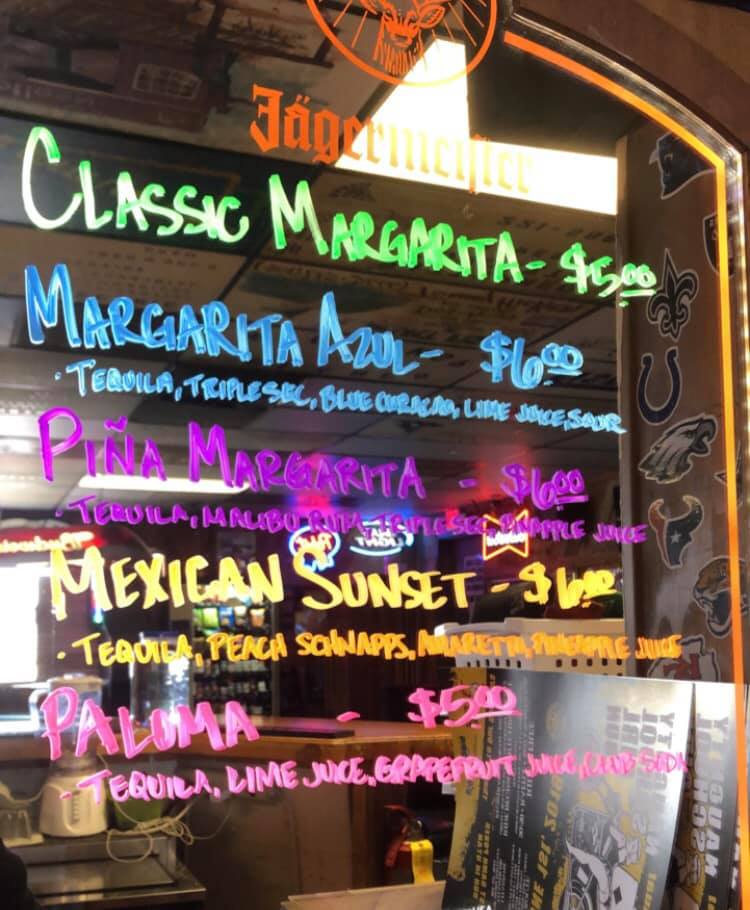 Jägermeister
CLASSIC MARGARITA - $5.00
MARGARITA AZUL - $6.00
· TEQUILA, TRIPLE SEC, BLUE CURACAO, LIME JUICE, SOUR
PIÑA MARGARITA - $6.00
· TEQUILA, MALIBU RUM, TRIPLE SEC, PINAPPLE JUICE
MEXICAN SUNSET - $6.00
· TEQUILA, PEACH SCHNAPPS, AMARETTO, PINEAPPLE JUICE
PALOMA - $5.00
- TEQUILA, LIME JUICE, GRAPEFRUIT JUICE, CLUB SODA